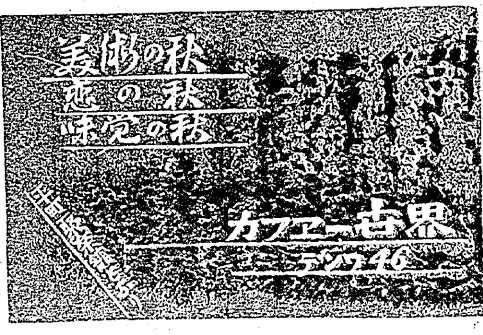 美術の秋
恋の秋
味覚の秋
カフヱー世界
デンワ46